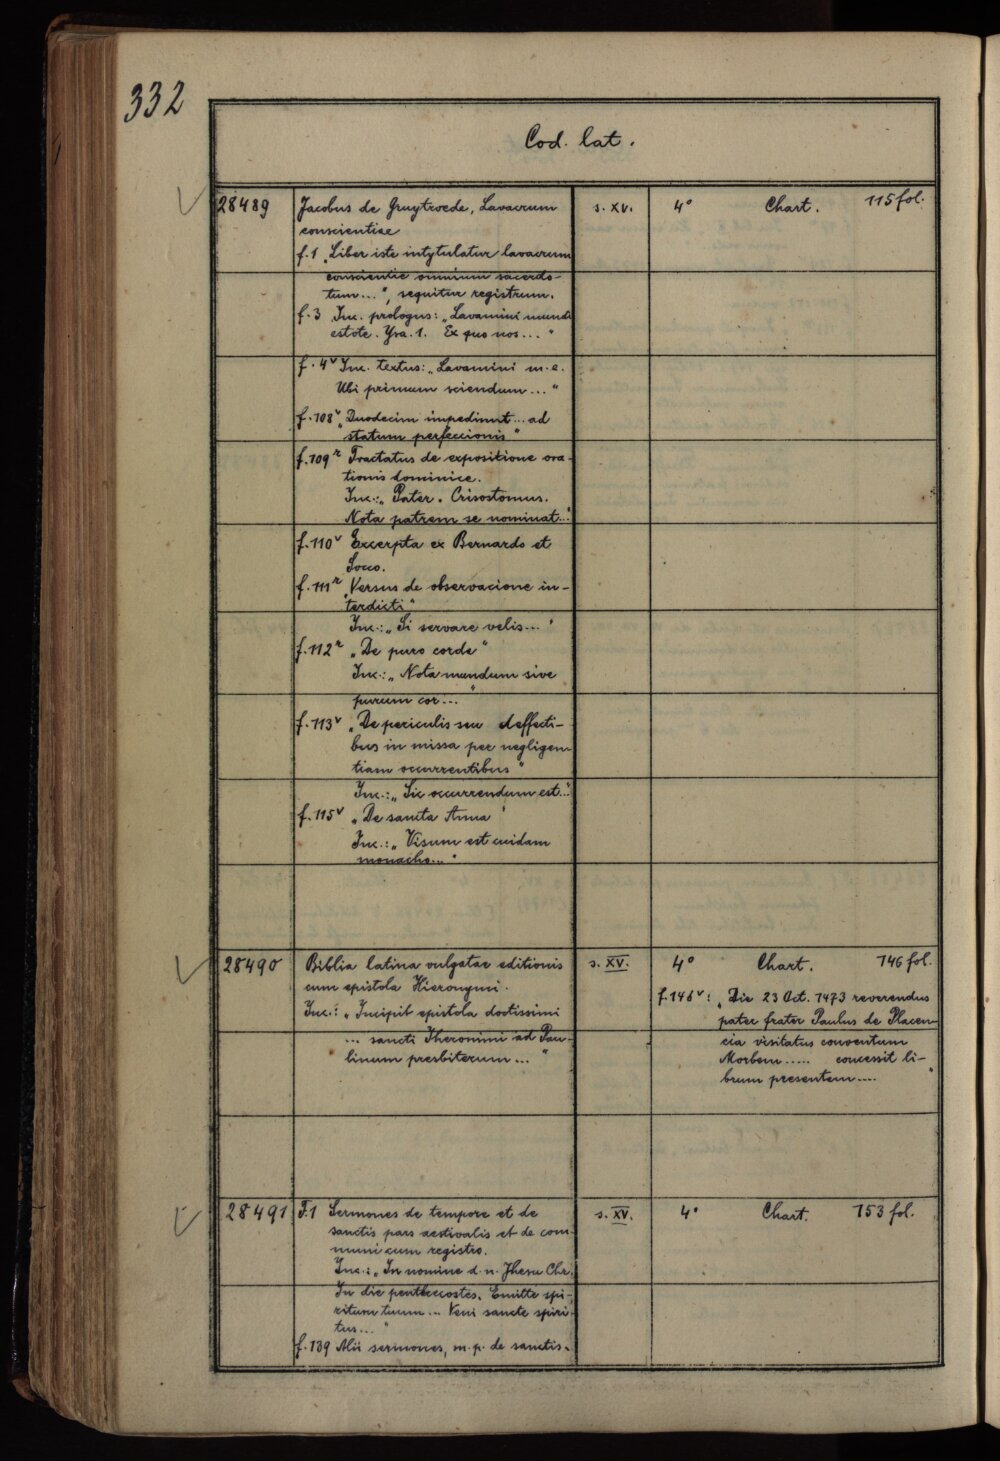 332
Cod. lat.
28489 Jacobus de Gruytroede, Lavacrum s. XV. 4° Chart. 115 fol.
conscientiae
f. 1 „Liber iste intytulatur lavacrum
conscientie omnium sacerdo-
tum...", sequitur registrum.
f. 3 Inc. prologus: „Lavamini mundi
estote. Ysa. 1. Ex quo nos..."
f. 4v Inc. textus: „Lavamini m. e.
Ubi primum sciendum..."
f. 108v „Duodecim impediunt... ad
statum perfeccionis"
f. 109r Tractatus de expositione ora-
tionis dominice.
Inc.: „Pater. Crisostomus.
Nota patrem se nominat..."
f. 110v Excerpta ex Bernardo et
Socco.
f. 111r „Versus de observacione in-
terdicti"
Inc.: „Si servare velis..."
f. 112r „De puro corde"
Inc.: „Nota mundum sive
purum cor..."
f. 113v „De periculis seu deffecti-
bus in missa per negligen-
tiam occurrentibus"
Inc.: „Sic occurrendum est..."
f. 115v „De sancta Anna"
Inc.: „Visum est cuidam
monacho..."
28490 Biblia latina vulgatae editionis s. XV. 4° Chart. 146 fol.
cum epistola Hieronymi.
Inc.: „Incipit epistola doctissimi
... sancti Iheronimi ad Pau-
linum presbiterum..."
f. 146v: „Die 23 Oct. 1473 reverendus
pater frater Paulus de Placen-
cia visitatus conventum
Morbem..... concessit li-
brum presentem...."
28491 F. 1 Sermones de tempore et de s. XV. 4° Chart. 153 fol.
sanctis pars aestivalis et de com-
muni cum registro.
Inc.: „In nomine d. n. Jhesu Chr.
In die penthecostes. Emitte spi-
ritum tuum... Veni sancte spiri-
tus..."
f. 139 Alii sermones, m. p. de sanctis.